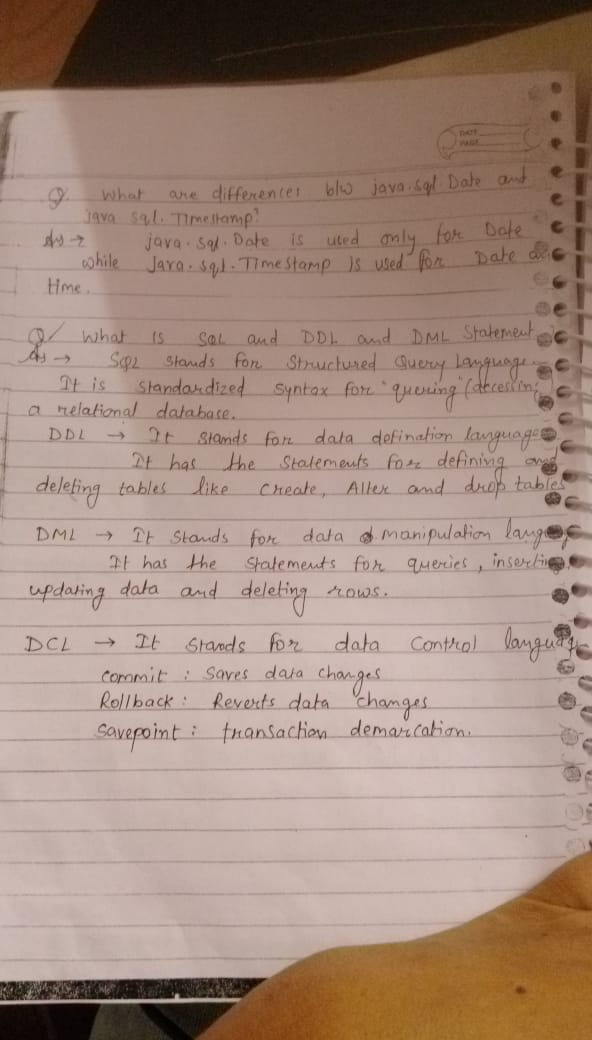 DATE
PAGE
Q. What are differences b/w java.sql.Date and
java sql. Timestamp?
Ans → java.sql.Date is used only for Date
while Java.sql.TimeStamp is used for Date and
time.
Q/ What is SQL and DDL and DML Statement
Ans → SQL stands for Structured Query Language.
It is standardized syntax for "quering" (accessing
a relational database.
DDL → It stands for data defination language
It has the statements for defining and
deleting tables like create, Alter and drop tables
DML → It stands for data manipulation language
It has the statements for queries, inserting,
updating data and deleting rows.
DCL → It stands for data control language
commit : Saves data changes
Rollback : Reverts data changes
savepoint : transaction demarcation.